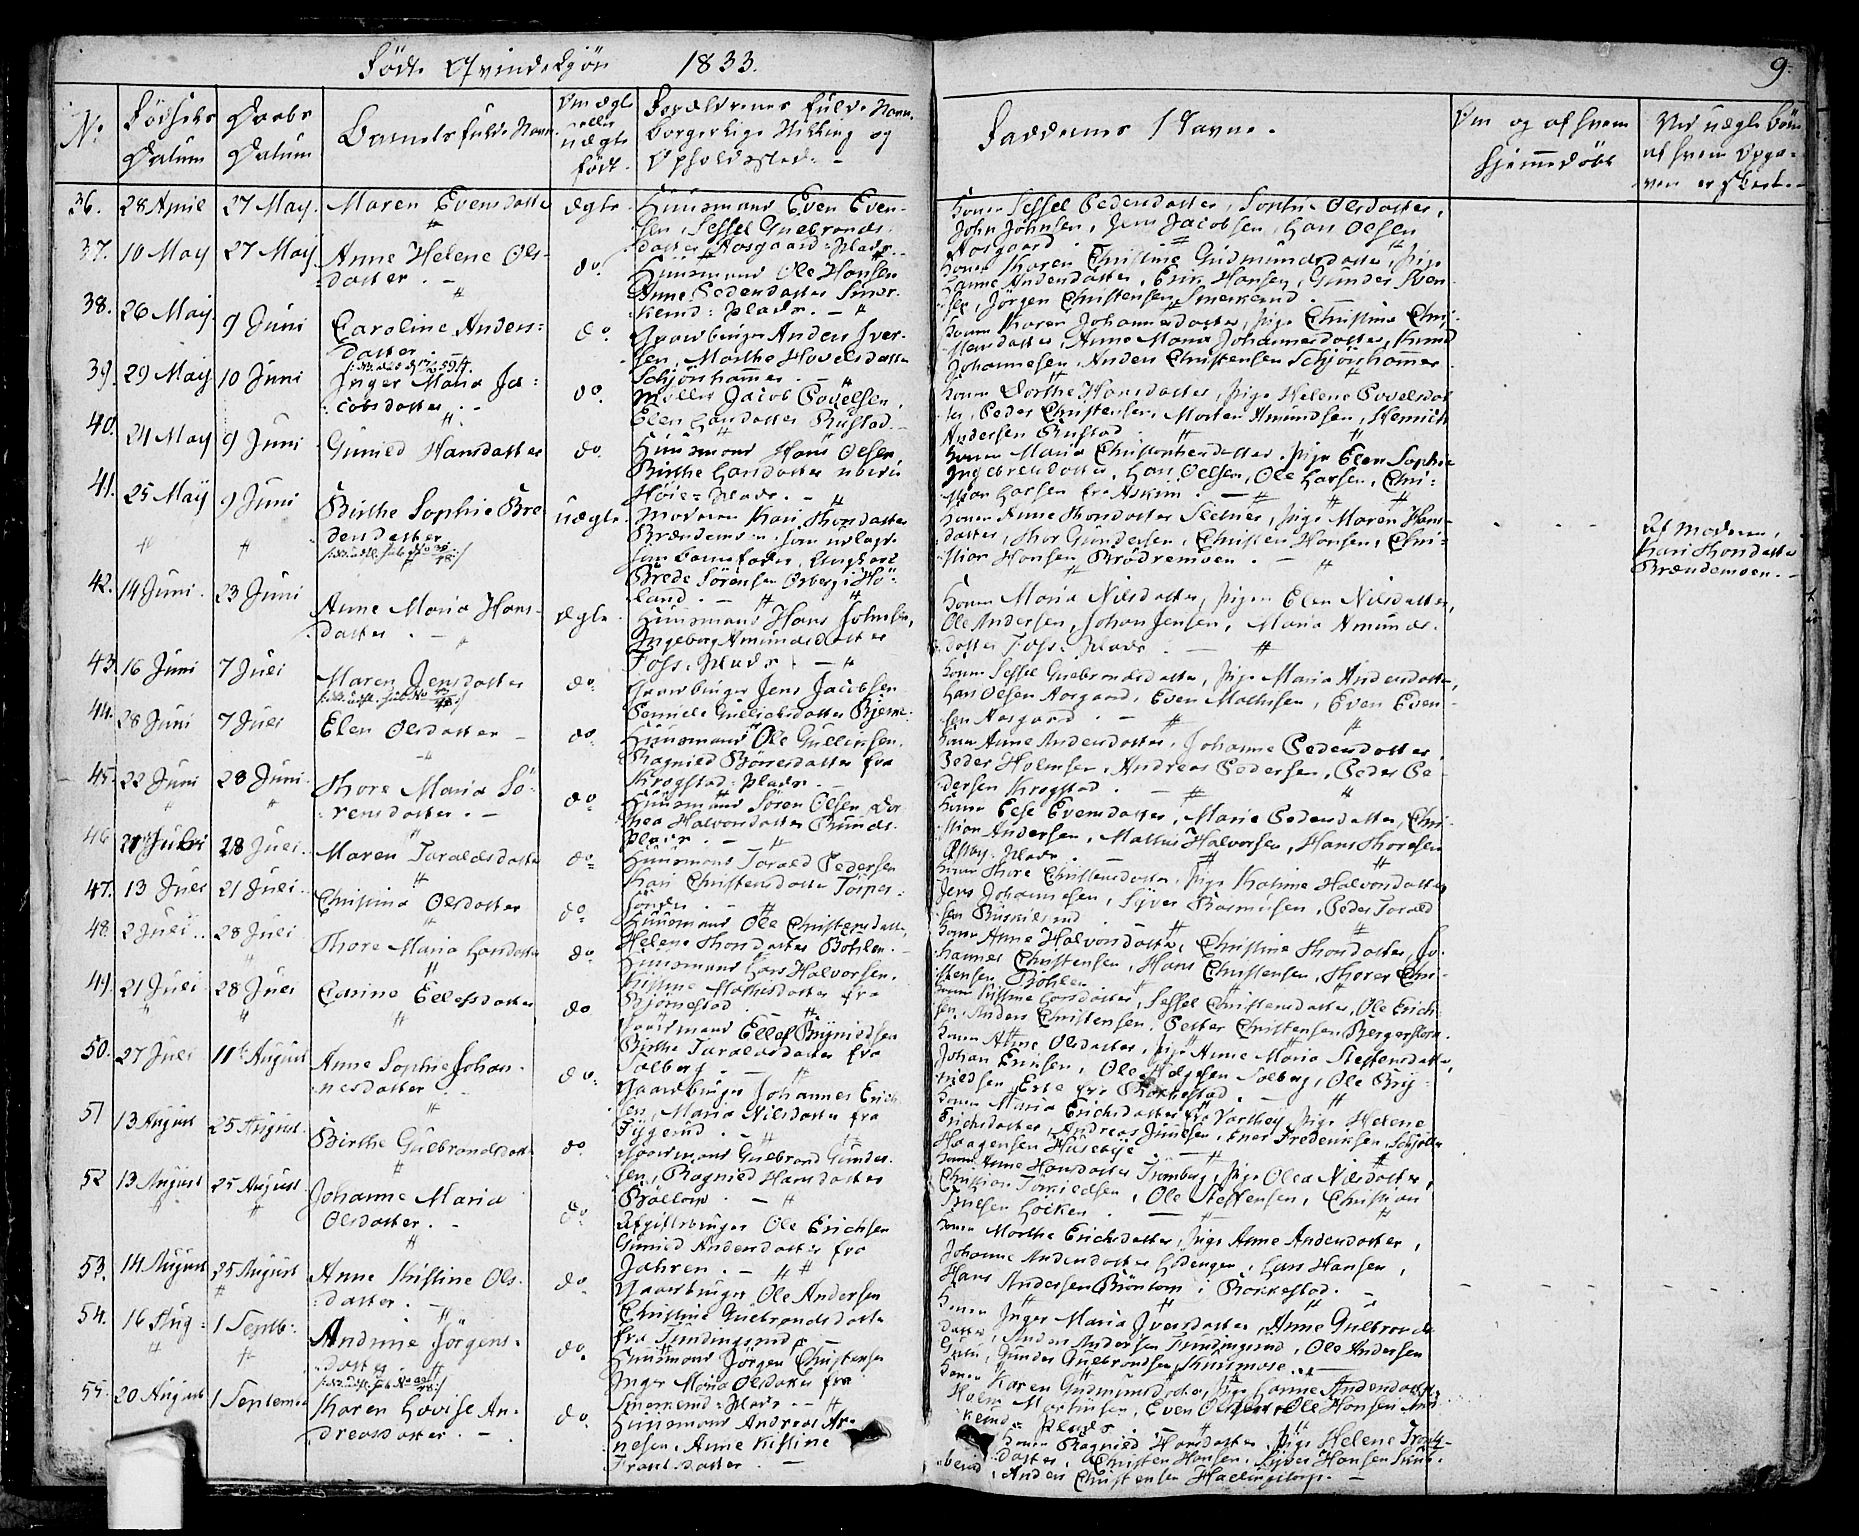 Födte Qvindekjön 1833.
9.
No
Födsels Datum
Daabs Datum
Barnets fulde Navn
Om ægte eller uægte födt.
Forældrenes fulde Navn, borgerlige Stilling og Opholdssted. -
Faddernes Navne.
Om og af hvem hjemmedöbt
Ved uægte Börn af hvem Opgaven er skeet. -
36. 28 April 27 May. Maren Evensdatter ægte. Huusmand Even Evensen, Sessel Gulbrandsdatter Aasgaard-plads.
Konen Sessel Pedersdatter, Sophie Olsdatter,
John Johnsen, Jens Jacobsen, Lars Olsen
Aasgaard.
37. 10 May 27 May Anne Helene Olsdatter. - do. Huusmand Ole Hansen
Anne Pedersdatter Smerkerud-plads. -
Konen Karen Christine Gudmundsdatter, pige
Hanne Andersdatter, Erik Hansen, Gunder Svensen, Jörgen Christensen Smerkerud.
38. 26 May 9 Juni Caroline Andersdatter do. Gaardbruger Anders Iversen, Marthe Hovelsdatter
Schjönhammer. -
Konen Karen Johannesdatter, pige Christine Christensdatter, Anne Maria Johannesdatter, Knud
Johannesen, Anders Christensen Schjönhammer
39. 29 May 10 Juni Inger Maria Jacobsdatter. - do. Møller Jacob Povelsen,
Elen Larsdatter Rustad. -
Konen Dorthe Hansdatter, pige Helene Povelsdatter, Peder Christensen, Morten Amundsen, Henrich
Andersen Rustad.
40. 24 May 9 Juni Gunild Hansdatter do. Huusmand Hans Olsen,
Birthe Larsdatter
Höie-plads. -
Konen Maria Christophersdatter, pige Elen Sophie
Ingebretsdatter, Lars Olsen, Ole Larsen, Christian Larsen fra Askim. -
41. 25 May 9 Juni Birthe Sophie Bredesdatter uægte. Moderen Kari Thorsdatter
Brændemoen, som udlagde
som barnefader, Ungkarl
Brede Sörensen Orberg i Höland. -
Konen Anne Thorsdatter Sletner, pige Maren Hansdatter, Thor Gundersen, Christen Hansen, Christian Hansen Brödremoen. -
Af moderen,
Kari Thorsdatter
Brændemoen. -
42. 14 Juni. 23 Juni Anne Maria Hansdatter. - ægte. Huusmand Hans Johnsen,
Ingeborg Amundsdatter
Foss-plads. -
Konen Maria Nilsdatter, pigen Elen Nilsdatter,
Ole Andersen, Johan Jensen, Maria Amundsdatter Foss-plads. -
43. 16 Juni 7 Juli Maren Jensdatter do. Gaardbruger Jens Jacobsen
Gulliksdatter Bjerne.
Konen Sessel Gulbrandsdatter, pige Maria Andersdatter,
Lars Olsen Aasgaard, Even Mathisen, Even Evensen Aasgaard. -
44. 28 Juni 7 Juli Elen Olsdatter - do. Huusmand Ole Gulliksen,
Ragnild Börresdatter fra
Krogstad-plads. -
Konen Anne Andersdatter, Johanne Pedersdatter
Peder Holmsen, Andreas Pedersen, Peder Pedersen Krogstad. -
45. 22 Juni 28 Juni. Thore Maria Sörensdatter. - do. Huusmand Sören Olsen, Dorthea Halvorsdatter
plads. -
Konen Else Evensdatter, Maria Pedersdatter, Christian Andersen, Mathis Halvorsen, Hans Thoresen
plads.
46. Juli 28 Juli. Maren Taraldsdatter do. Huusmand Tarald Pedersen
Kari Christensdatter
Konen Thore Christensdatter, pige Katrine Halvorsdatter
Jens Johannesen, Syver Rasmusen, Peder Taraldsen
47. 13 Juli 21 Juli. Christine Olsdatter do. Huusmand Ole Christensen,
Helene Thorsdatter Böhlen. -
Konen Anne Halvorsdatter, Christine Thorsdatter, Johannes Christensen, Hans Christensen, Thorer Christensen Böhlen
48. 2 Juli. 28 Juli Thore Maria Larsdatter do. Huusmand Lars Halvorsen.
Kistine Mathisdatter fra
Bjørnestad.
Konen Kistine Larsdatter, Sessel Christensdatter, Ole Erichsen, Anders Christensen, Petter Christensen Bergerslem.
49. 21 Juli 28 Juli Ellefsdatter do Gaardmand Ellef Brynildsen
Birthe Taraldsdatter fra
Solberg. -
Konen Anne Olsdatter, pige Anne Maria Steffensdatter,
Johan Ericsen, Ole Helgesen Solberg, Ole Brynildsen Erte fra Rakkestad.
50. 27 Juli 11te August Anne Sophie Johannesdatter. - do. Gaardbruger Johannes Erichsen, Maria Nilsdatter fra
Tyggerud. -
Konen Maria Erichsdatter fra Vardhey, pige Helene
Erichsdatter, Andreas Juulsen, Ener Frederiksen,
Haagensen Huseböye
51 13 August 25 August. Birthe Gulbrandsdatter do. Gaardmand Gulbrand Gundersen, Ragnild Hansdatter
Konen Anne Hansdatter Tromberg, pige Olea Nilsdatter,
Christian Torkildsen, Ole Steffensen, Christian
52 13 August 25 August. Johanne Maria
Olsdatter. - do. Afgiftsbruger Ole Erichsen
Gunild Andersdatter fra
Jahren. -
Konen Marthe Erichsdatter, pige Anne Andersdatter,
Johanne Andersdatter, Lars Hansen,
Hans Andersen i Rakkestad. -
53. 14 August 25 August Anne Kistine Olsdatter. - do. Gaardbruger Ole Andersen
Christine Gulbrandsdatter
fra
Konen Inger Maria Iversdatter, Anne Gulbrandsdatter, Anders Andersen, Ole Andersen
Gunder Gulbrandsen
54. 16 Aug. 1 Septb. Andrine Jörgensdatter. do. Huusmand Jörgen Christensen
Inger Maria Olsdatter fra
Smerkerud-plads. -
Konen Karen Gudmundsdatter, pige Hanne Andersdatter
Martinsen, Even Olsen, Ole Hansen Smerkerud-plads.
55. 20 August 1 September Karen Lovise Andreasdatter. - do. Huusmand Andreas Arnesen, Anne Kistine
Frantsdatter. -
Konen Ragnild Hansdatter, pige Helene Frantsdatter, Christen Hansen, Syver Hansen
Anders Christensen Hællingstorp. -